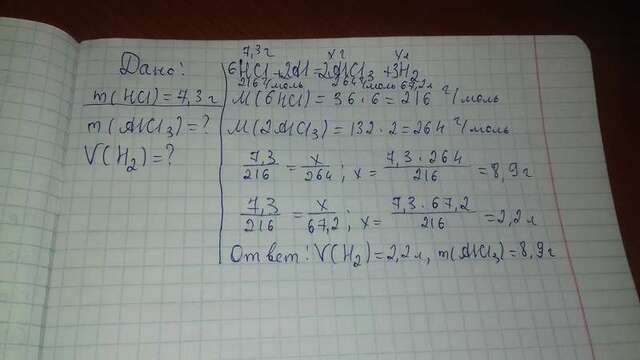 Дано:
m(HCl) = 7,3 г
m(AlCl3) = ?
V(H2) = ?
7,3 г x г x л
6HCl + 2Al = 2AlCl3 + 3H2
216 г/моль 264 г/моль 67,2 л
M(6HCl) = 36·6 = 216 г/моль
M(2AlCl3) = 132·2 = 264 г/моль
7,3/216 = x/264; x = 7,3·264/216 = 8,9 г
7,3/216 = x/67,2; x = 7,3·67,2/216 = 2,2 л
Ответ: V(H2) = 2,2 л, m(AlCl3) = 8,9 г